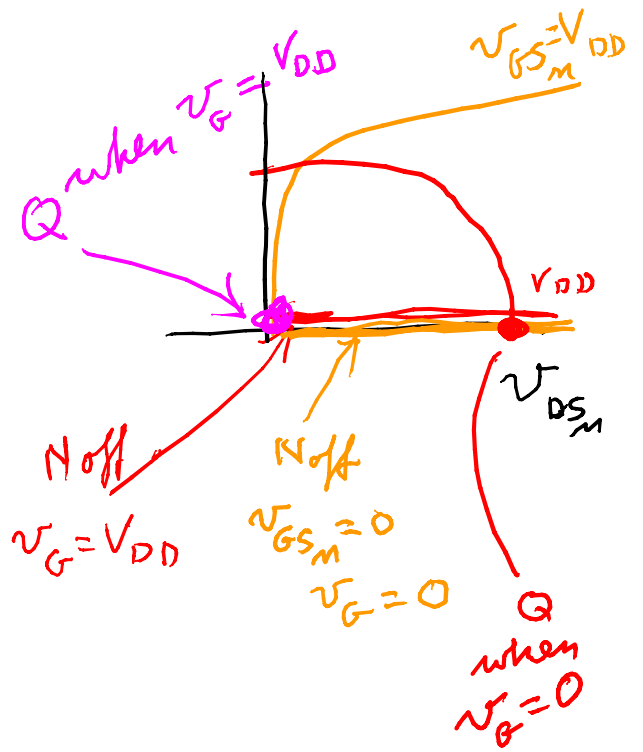 v_GSn=V_DD
Q when v_G=V_DD
V_DD
v_DSn
N off
v_G=V_DD
N off
v_GSn=0
v_G=0
Q
when
v_G=0